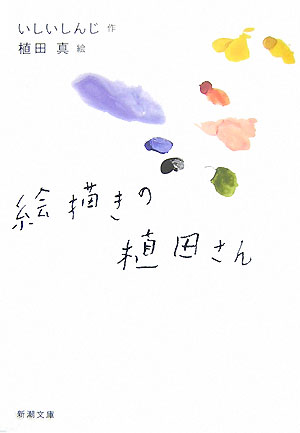 いしいしんじ 作
植田 真 絵
絵描きの
植田さん
新潮文庫